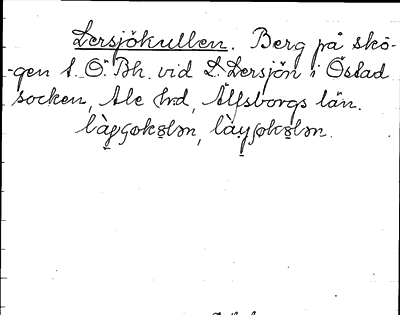 Lersjökullen. Berg på skö-
-gen t. Ö. Bh. vid L. Lersjön i Östad
socken, Ale hd, Älfsborgs län.